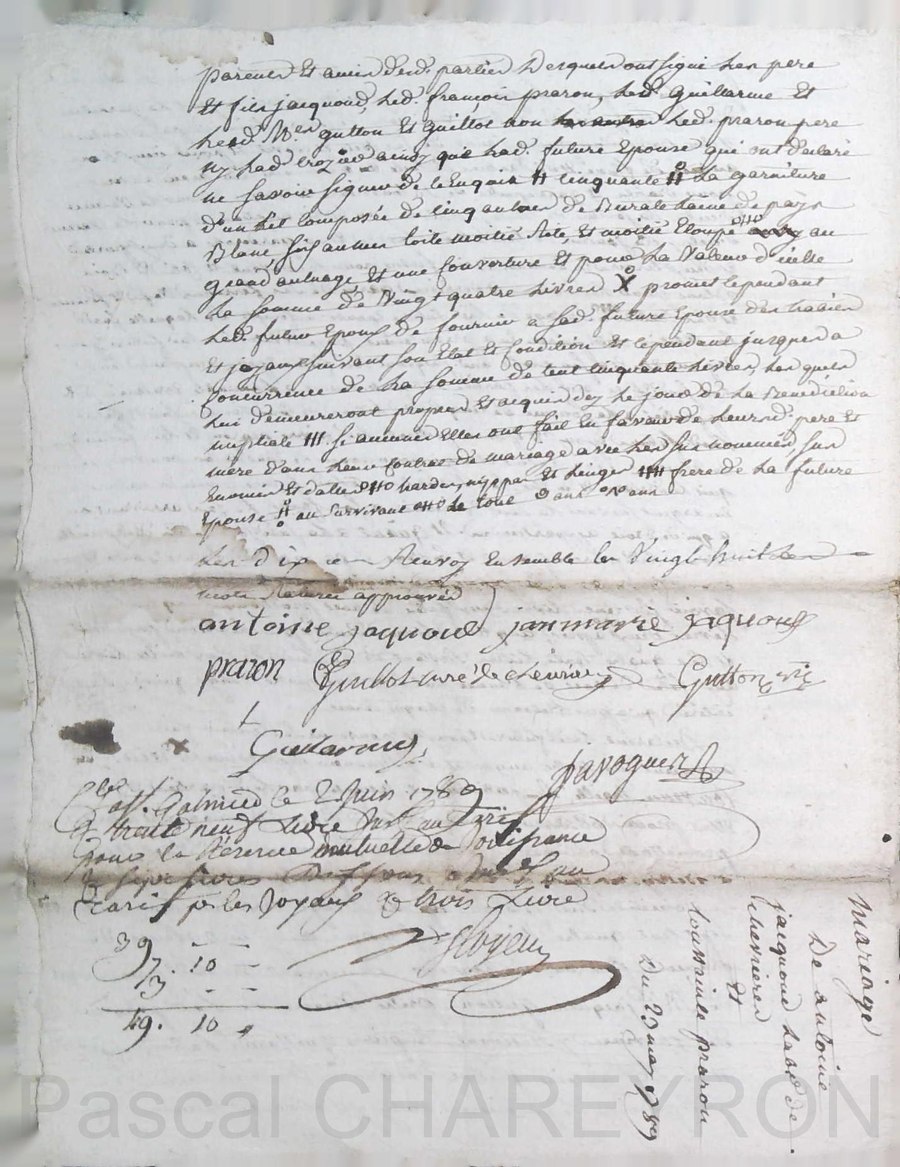 parents et amis desd. parties Lesquels ont signé Les pere
et fils jacquoud, led. françois praron, led. Guillarme et
lesd. Mes gutton et Guillot non led. praron pere
ny lad. ainsy que lad. future Epouse qui ont declaré
ne savoir signer de ce Enquis # cinquante # La garniture
d'un Lit composée de cinq aulnes de Burate Laine de pays
Blanc, six aulnes toile moitié et moitié Etoupe au
grand aulnage, et une couverture et pour La valeur d'icelle
La somme de vingt quatre Livres X promet cependant
led. futur Epoux de fournir a sad. future Epouse des habits
et joyaux suivant son Etat et condition et cependant jusques a
concurrence de La somme de cent cinquante Livres, Lesquels
lui demeureront propres et acquis des le jour de La Benediction
nuptiale III si aucunes Elles ont fait En faveur de Leursd. pere et
mere dans Leur contrat de mariage avec Les sus nommés, sus
Enoncés et datés hardes, nippes et Linges frere de La future
Epouse au survivant de tout ans ans
Les dix Renvoy Ensemble les vingt huit
mots Raturés approuvés
antoine jaquoud janmarie jaquoud
praron Guillot curé de chevrieres Gutton
Guillarme
pavoguer
Clé a st. Galmier le 2 juin 1789
R trente neuf Livre
pour la Reserve mutuelle
& sept Livres Dix sous
tarif pr les joyaux & trois Livre
39 — —
7. 10 —
3 — —
49. 10 „
mariage
De antoine
jacquoud Lad. de
chevrieres
Et
toussainte praron
Du 23 may 1789
Pascal CHAREYRON